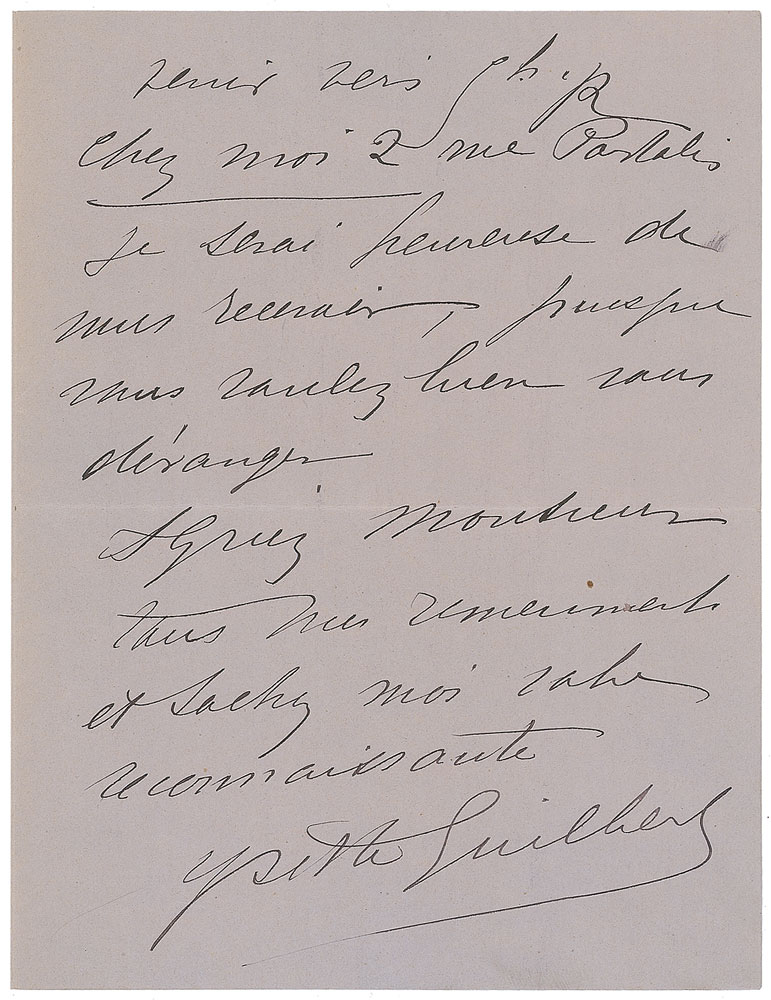 venir vers 5h. ½
chez moi 2 rue Portalis
je serai heureuse de
vous recevoir, puisque
vous voulez bien vous
déranger
Agréez Monsieur
tous mes remerciments
et sachez moi votre
reconnaissante
Yvette Guilbert